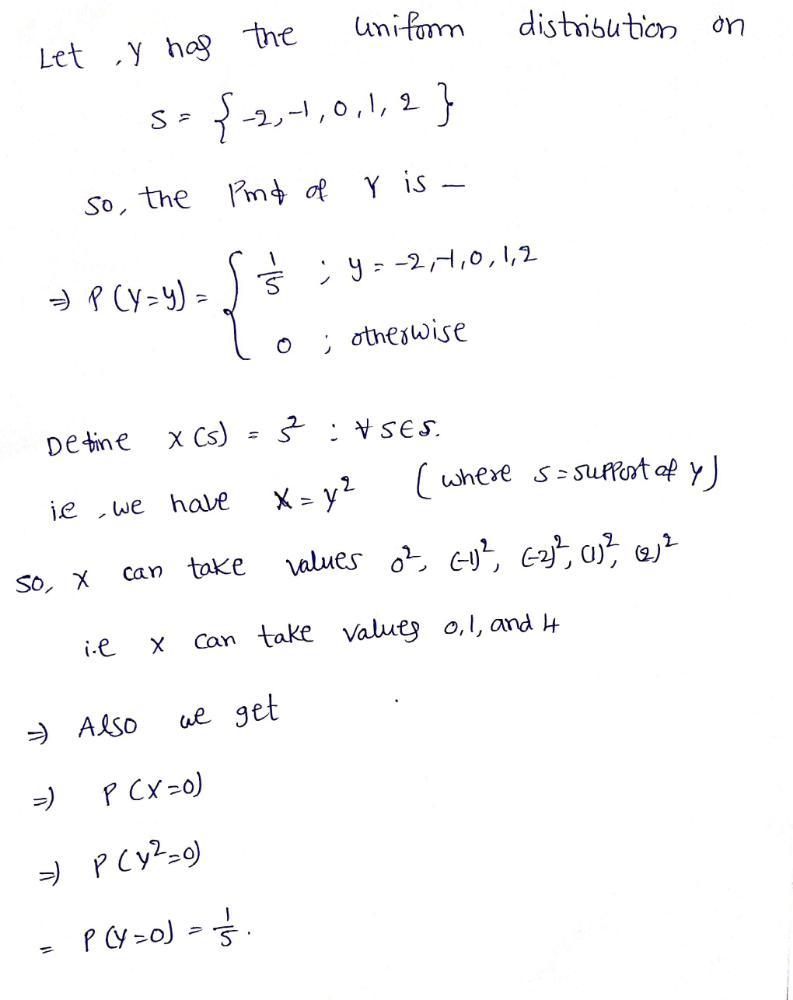 Let, Y has the uniform distribution on
S = { -2, -1, 0, 1, 2 }
So, the Pmf of Y is —
⇒ P(Y=y) = { 1/5 ; y = -2, -1, 0, 1, 2
0 ; otherwise
Define X(s) = s² : ∀ s∈S.
i.e, we have X = Y² (where S = support of Y)
So, X can take values 0², (-1)², (-2)², (1)², (2)²
i.e X can take values 0, 1, and 4
⇒ Also we get
⇒ P(X=0)
⇒ P(Y²=0)
= P(Y=0) = 1/5.